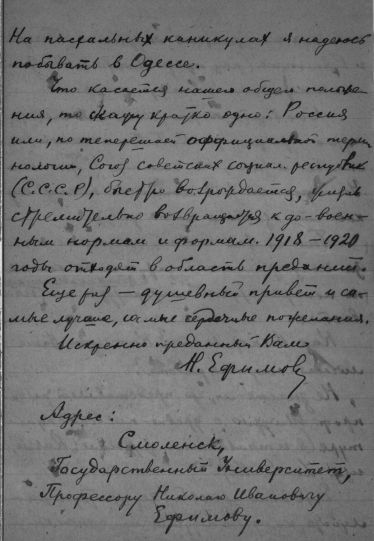 На пасхальных каникулах я надеюсь
побывать в Одессе.
Что касается нашего общего положе-
ния, то скажу кратко одно: Россия
или, по теперешней официальной терми-
нологии, Союз советских социал. республик
(С.С.С.Р), быстро возрождается, жизнь
стремительно возвращается к до-воен-
ным нормам и формам. 1918–1920
годы отходят в область преданий.
Еще раз — душевный привет и са-
мые лучшие, самые сердечные пожелания.
Искренно преданный Вам
Н. Ефимов
Адрес:
Смоленск,
Государственный Университет,
Профессору Николаю Ивановичу
Ефимову.